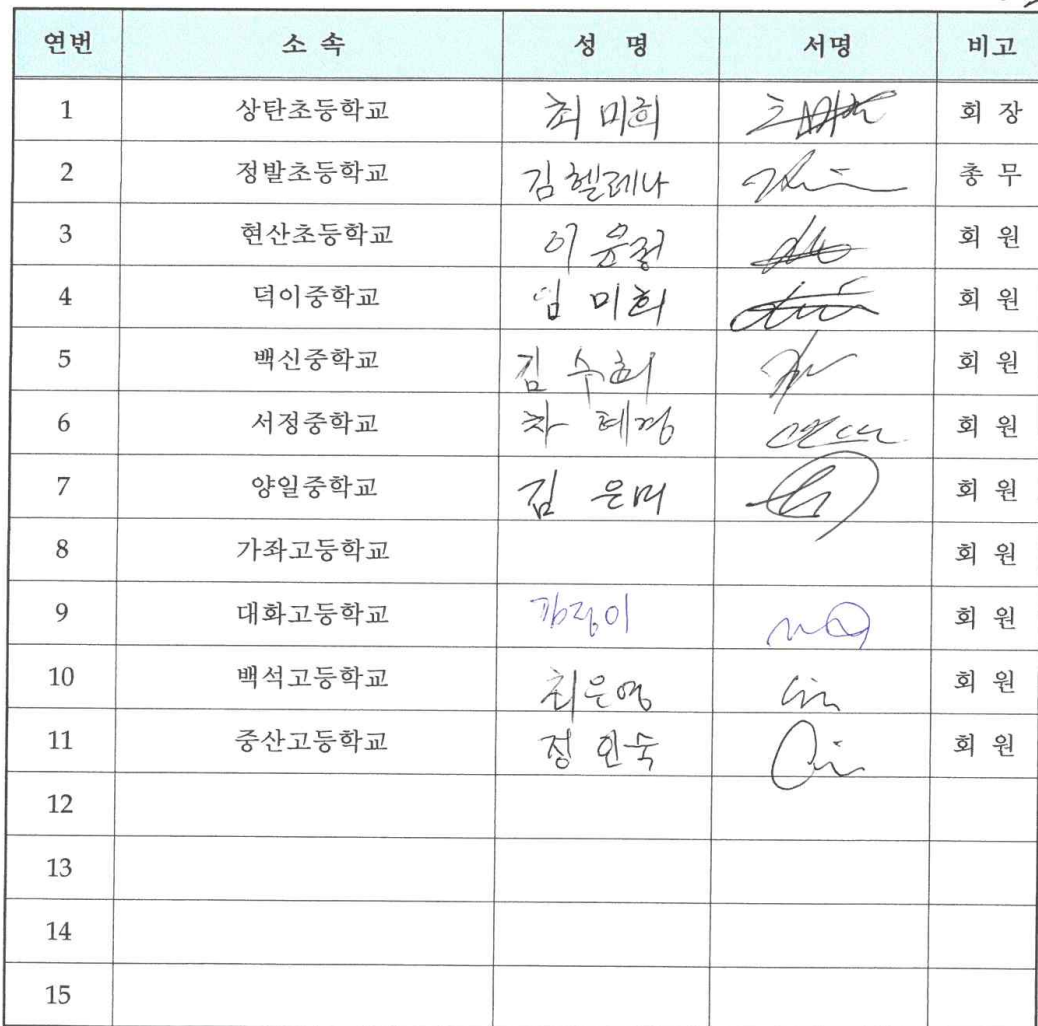 연번 소 속 성 명 서명 비고
1 상탄초등학교 최 미희 회 장
2 정발초등학교 김헬레나 총 무
3 현산초등학교 이 윤정 회 원
4 덕이중학교 임 미희 회 원
5 백신중학교 김 수희 회 원
6 서정중학교 차 혜경 회 원
7 양일중학교 김 은미 회 원
8 가좌고등학교 회 원
9 대화고등학교 회 원
10 백석고등학교 최은영 회 원
11 중산고등학교 정 인숙 회 원
12
13
14
15